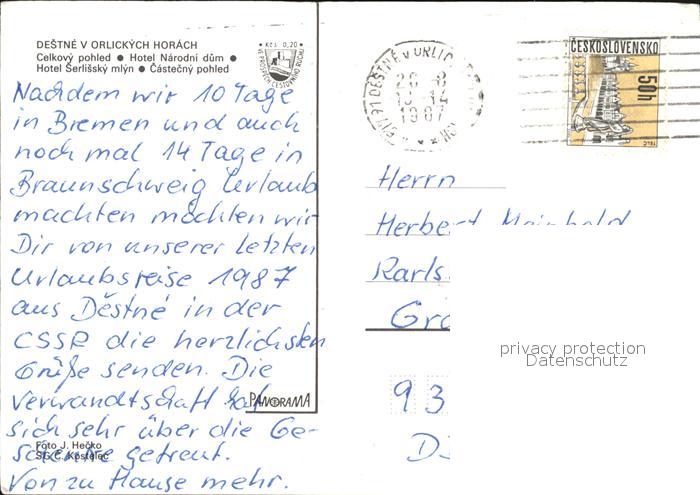 DEŠTNÉ V ORLICKÝCH HORÁCH
Celkový pohled ● Hotel Národní dům ●
Hotel Šerlišský mlýn ● Částečný pohled
Kčs 0,20
VE PROSPĚCH CESTOVNÍHO RUCHU
Nachdem wir 10 Tage
in Bremen und auch
noch mal 14 Tage in
Braunschweig Urlaub
machten möchten wir
Dir von unserer letzten
Urlaubsreise 1987
aus Děstné in der
CSSR die herzlichsten
Grüße senden. Die
Verwandtschaft hat
sich sehr über die Ge-
schenke gefreut.
Von zu Hause mehr.
PANORAMA
Foto J. Hečko
SG Č. Kostelec
517 91 DEŠTNÉ V ORLIC
HOR
ČESKOSLOVENSKO
50h
TELČ
Herrn
Herbert
Karls
Gro
93
D
privacy protection
Datenschutz